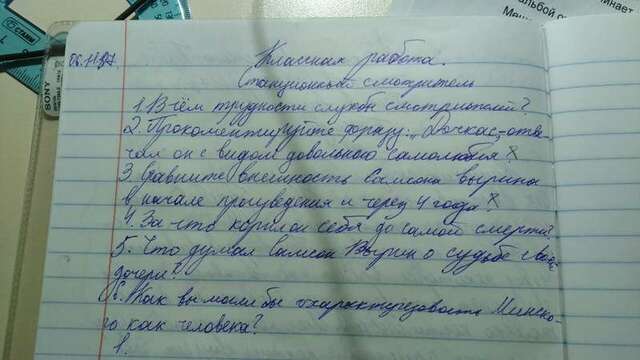 06.11.17.
Классная работа.
Станционный смотритель
1. В чём трудности службы смотрителей?
2. Прокоментируйте фразу: „Дочкас,- отве-
чал он с видом довольного самолюбия." х
3. Сравните внешность Самсона Вырина
в начале произведения и через 4 года? х
4. За что корил он себя до самой смерти?
5. Что думал Самсон Вырин о судьбе своей
дочери?
6. Как вы могли бы охарактеризовать Минско-
го как человека?
1.
SONY